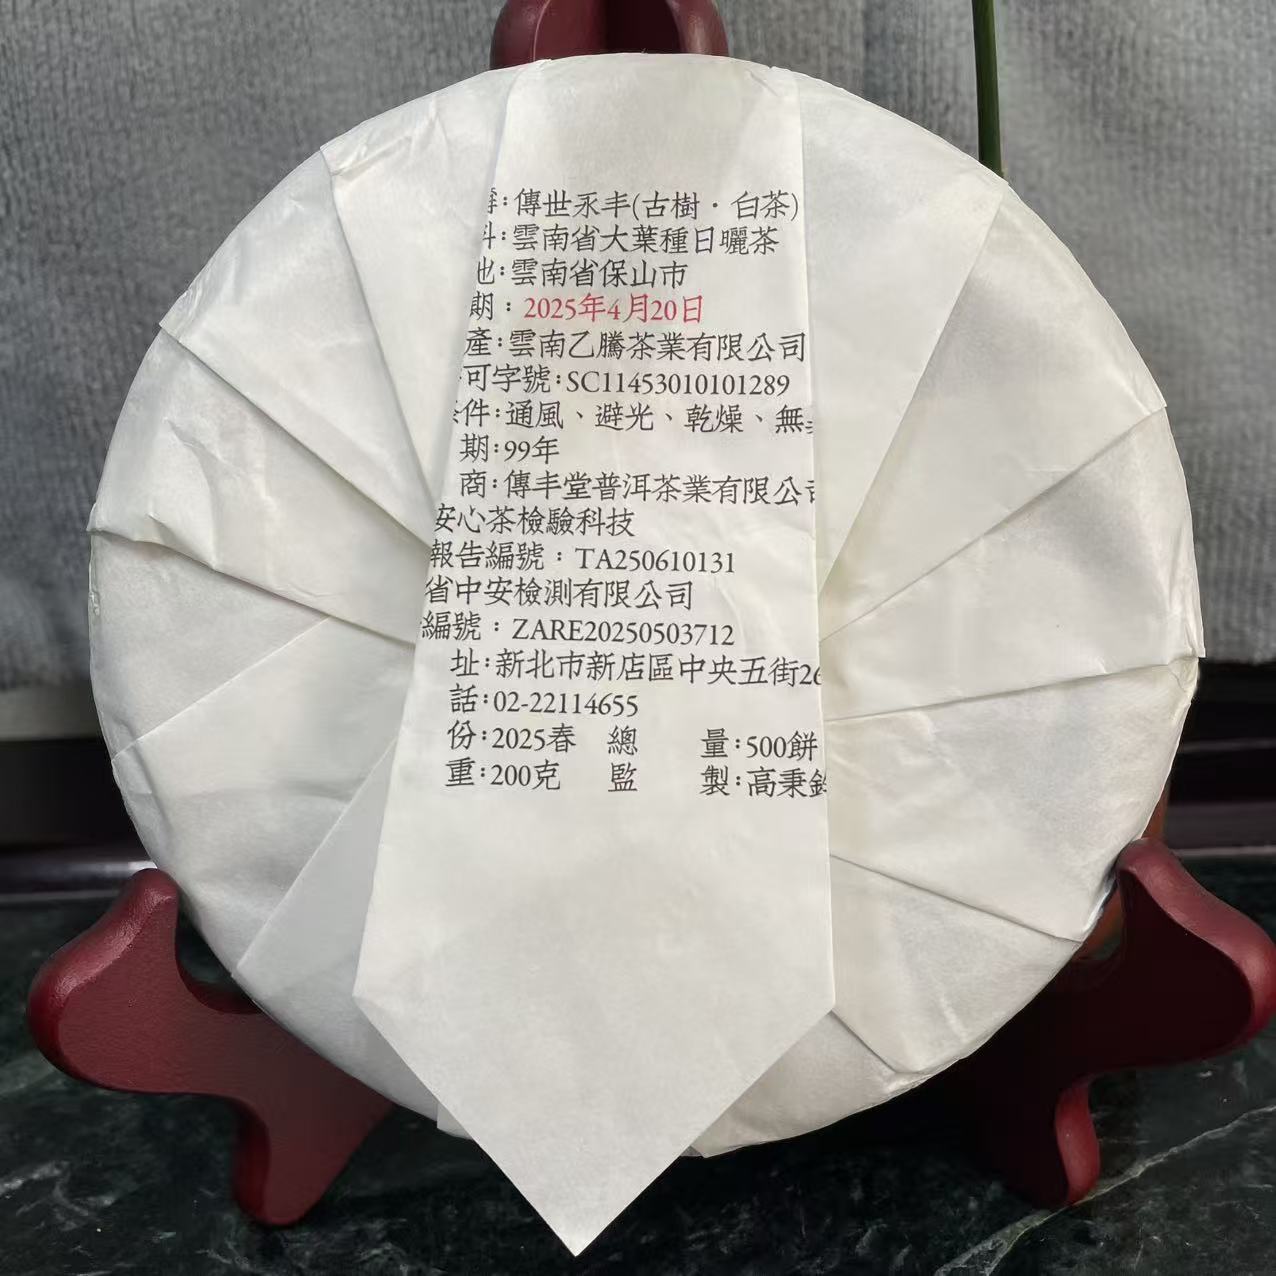 :傳世永丰(古樹・白茶)
:雲南省大葉種日曬茶
:雲南省保山市
期：2025年4月20日
產:雲南乙騰茶業有限公司
可字號:SC11453010101289
件:通風、避光、乾燥、無
期:99年
商:傳丰堂普洱茶業有限公司
安心茶檢驗科技
報告編號：TA250610131
省中安檢測有限公司
編號：ZARE20250503712
址:新北市新店區中央五街26
話:02-22114655
份:2025春 總 量:500餅
重:200克 監 製:高秉